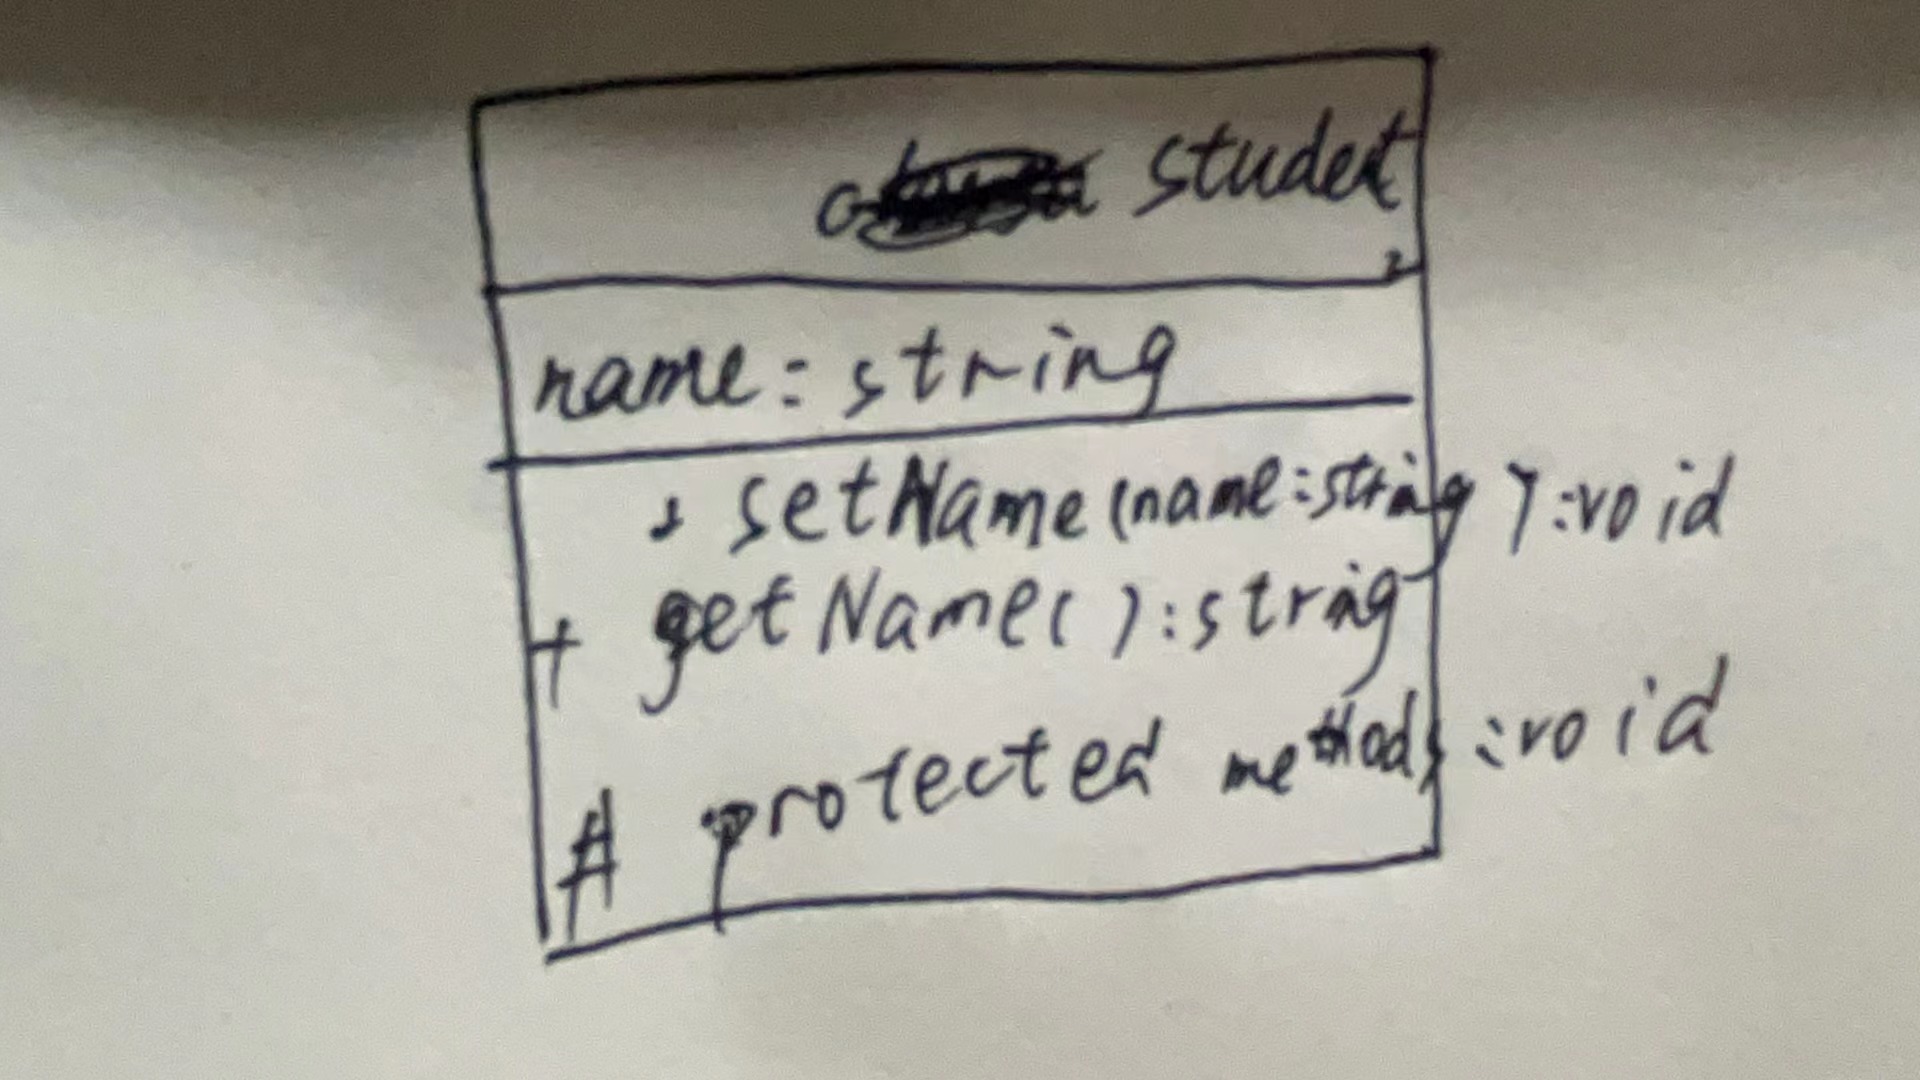 student
name: string
+ setName (name:string ) :void
+ getName( ) :string
# protected methods :void